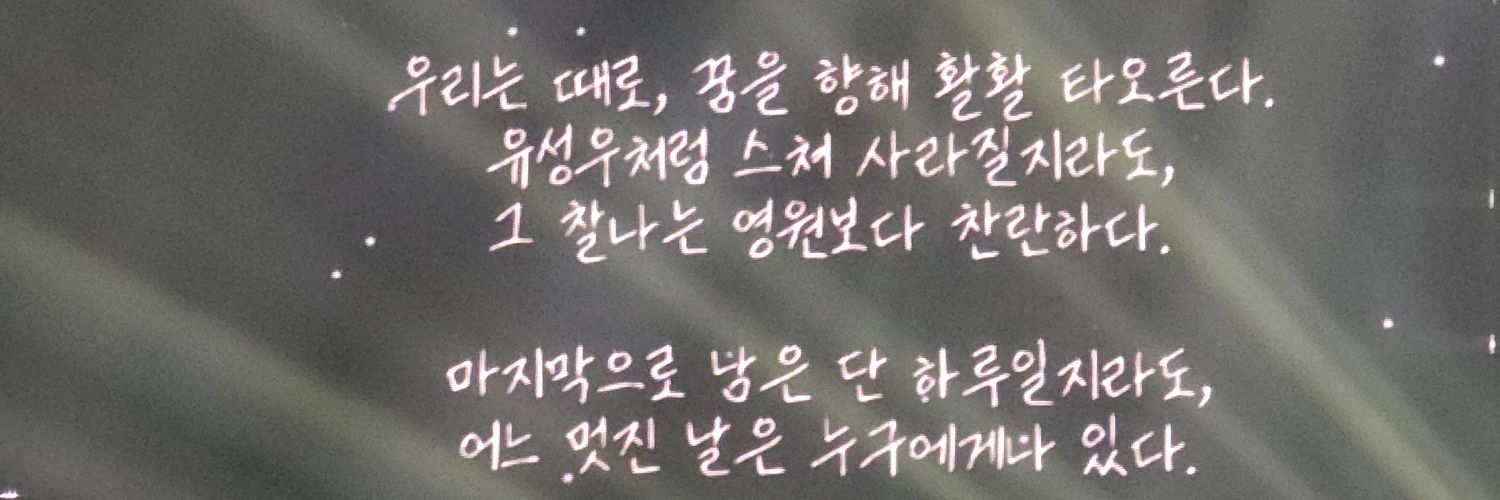 우리는 때로, 꿈을 향해 활활 타오른다.
유성우처럼 스쳐 사라질지라도,
그 찰나는 영원보다 찬란하다.
마지막으로 남은 단 하루일지라도,
어느 멋진 날은 누구에게나 있다.